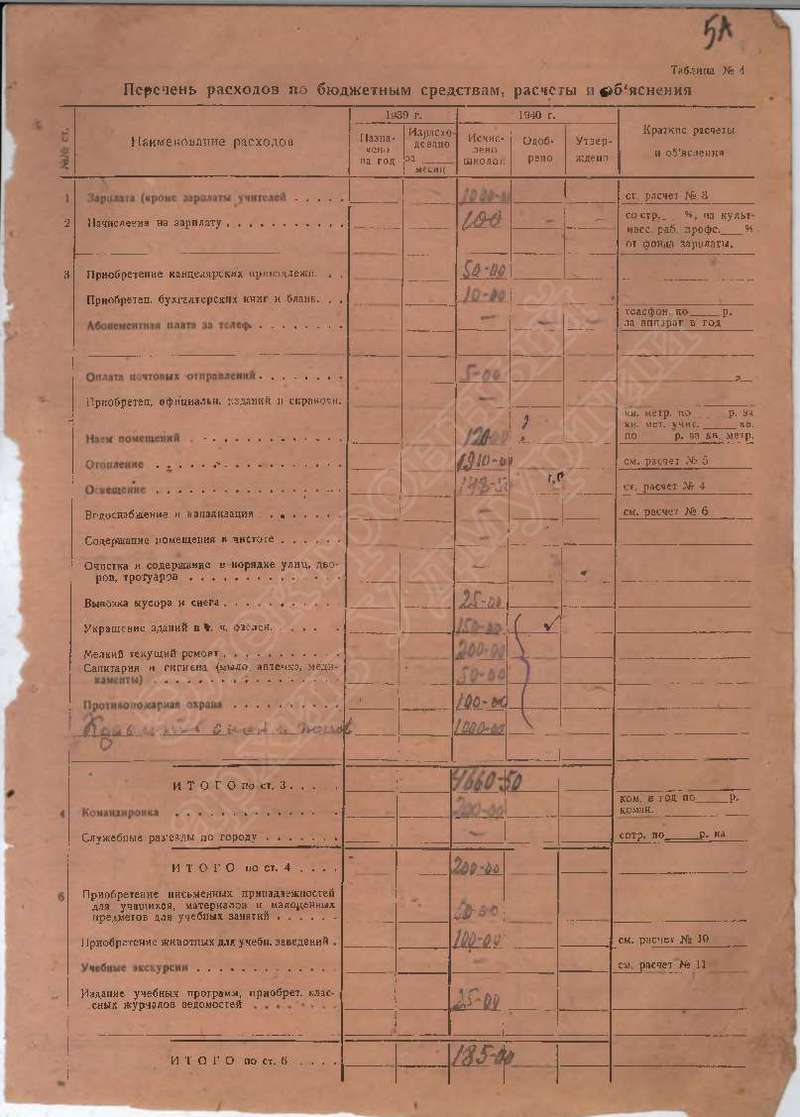 5А
Таблица № 4
Перечень расходов по бюджетным средствам, расчеты и об'яснения
№№ ст.
Наименование расходов
1939 г.
Назначено на год
Израсходовано за ____ месяц
1940 г.
Исчислено школой
Одобрено
Утверждено
Краткие расчеты
и об'яснения
1 Зарплата (кроме зарплаты учителей . . . . . 1000-00 см. расчет № 3
2 Начисления на зарплату . . . . . . . . . . 100 со стр. %, на культ-
масс. раб. профс. %
от фонда зарплаты.
3 Приобретение канцелярских принадлежн. . . 50-00
Приобретен. бухгалтерских книг и бланк. . . 10-00
телефон. по р.
Абонементная плата за телеф. . . . . . . . . — — — за аппарат в год
Оплата почтовых отправлений . . . . . . . . 5-00
Приобретен. официальн. изданий и справочн. —
кв. метр. по р. за
кв. мет. учис. кв.
Наем помещений . . . . . . . . . . . 120-00 по р. за кв. метр.
Отопление . . . . . . . . . . . . . 1910-00 см. расчет № 5
Освещение . . . . . . . . . . . . . см. расчет № 4
Водоснабжение и канализация . . . . . . . — см. расчет № 6
Содержание помещения в чистоте . . . . . . —
Очистка и содержание в порядке улиц, дво-
ров, тротуаров . . . . . . . . . . . . . —
Вывозка мусора и снега . . . . . . . . . . 25-00
Украшение зданий в т. ч. фасадн. . . . . . 150-00
Мелкий текущий ремонт . . . . . . . . . . 200-00
Санитария и гигиена (мыло, аптечка, меди-
каменты) . . . . . . . . . . . . . . . . 50-00
Противопожарная охрана . . . . . . . . . 100-00
1000-00
ИТОГО по ст. 3 . . . . . 4660-50
4 Командировка . . . . . . . . . . . . . 200-00 ком. в год по р.
коман.
Служебные раз'езды по городу . . . . . . . — сотр. по р. на
ИТОГО по ст. 4 . . . . 200-00
6 Приобретение письменных принадлежностей
для учащихся, материалов и малоценных
предметов для учебных занятий . . . . . . 50-00
Приобретение животных для учебн. заведений . 100-00 см. расчет № 10
Учебные экскурсии . . . . . . . . . . . . — см. расчет № 11
Издание учебных программ, приобрет. клас-
сных журналов ведомостей . . . . . . . . 25-00
ИТОГО по ст. 6 . . . . 185-00